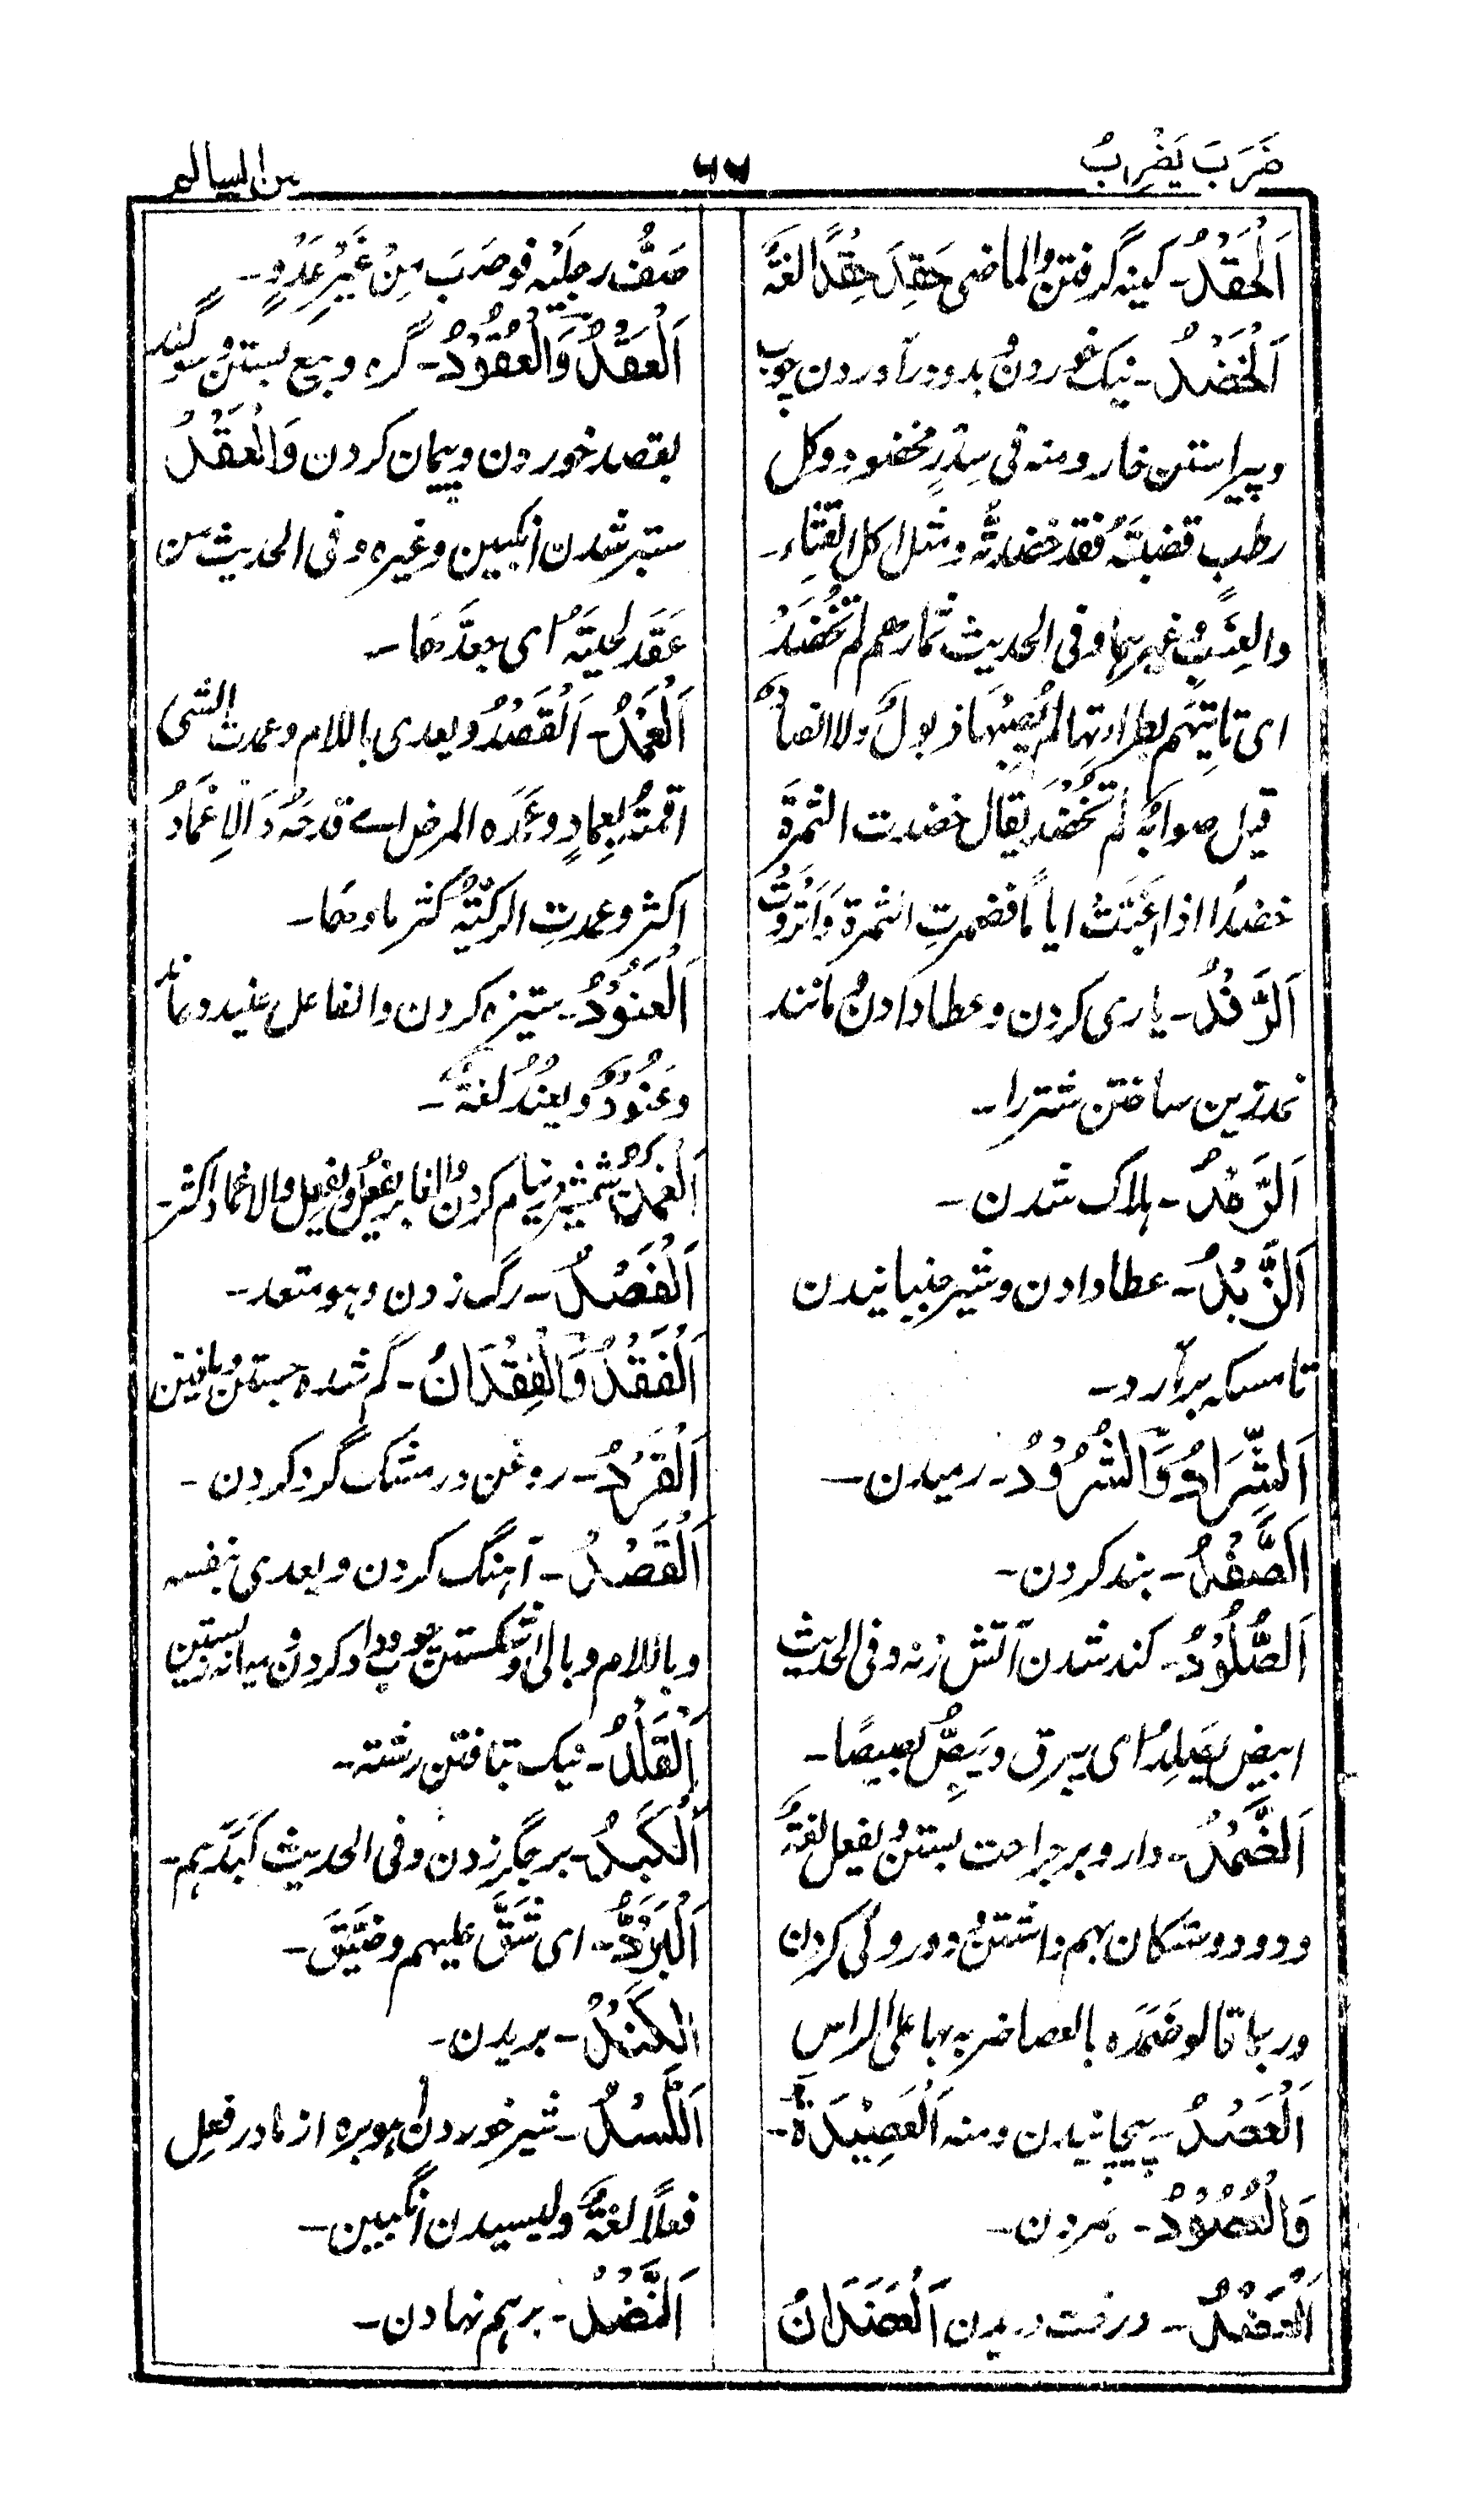 ضَرَبَ يَضْرِبُ
٦٧
من السالم
اَلْحَقْدُ۔ کینه گرفتن والماضی حَقِدَ حِقْدًا لغةً
اَلْخَضْدُ۔ نیک خوردن و بدو درآوردن چوب
وپیراستن خار ومنه فی سِدْرٍ مخضود وکل
رطبٍ قضبتَهُ فقد خضدتَّه ومثل اکل القثاءِ۔
والعِنَبِ وغیرهما وفی الحدیث ثمارهم لم تُخْضَدْ
ای تاتیَهم بطراوتها لم یُصِبْها ذبولٌ ولا انضاءٌ
قیل صوابهُ لم تَخْضَدْ یقال خضدت الثمرةَ
خضدًا اذا غَبَّتْ ایامًا فضمرتِ الثمرة وَانْزَوَتْ
اَلرَّفْدُ۔ یاری کردن وعطا دادن ومانند
نمدزین ساختن شتر را۔
اَلرَّمْدُ۔ هلاک شدن۔
اَلزَّبْدُ۔ عطا دادن وشیر جنبانیدن
تا مسکه برآرد۔
اَلشِّرَادُ وَالشُّرُوْدُ۔ رمیدن۔
اَلصَّفْدُ۔ بند کردن۔
اَلصُّلُوْدُ۔ کند شدن آتش زنه وفی الحدیث
ابیض یَصْلِدُ ای یبرق ویَبِصُّ بصیصًا۔
اَلضَّمْدُ۔ دارو بر جراحت بستن ویفعل لغةً
ودو دوستکان بهم داشتن و دوروئی کردن
وربما قالو ضَمَدَه بالعصا ضربه بها علی الراسِ
اَلْعَصْدُ۔ پیچانیدن ومنه اَلْعَصِیْدَةُ۔
وَالْعُصُوْدُ۔ مردن۔
اَلْعَضْدُ۔ درخت بریدن اَلْعَضَدَانُ
صَفُّ رجلَیْه فوضَرَبَ مِنْ غَیْرِ عَدْوٍ۔
اَلْعَقْدُ وَالْعُقُوْدُ۔ گره وبیع بستن وسوگند
بقصد خوردن وپیمان کردن وَالْعَقْدُ
ستبر شدن انگبین وغیره وفی الحدیث من
عَقَدَ لحیتَهُ ای جعَّدَها۔
اَلْعَمْدُ۔ اَلْقَصْدُ ویعدی باللام وعمدت الشی
اقمتُهُ بِعِمادٍ وعَمَدَه المرض اے قدحَهُ وَالْاِعْمَادُ
اکثر وعمدتِ الرکیَّةُ کثر ماؤها۔
اَلْعُنُوْدُ۔ ستیزه کردن والفاعل عنید وعاند
وعَنُوْدٌ ویعنُدُ لغةٌ۔
اَلْغَمْدُ۔ شمشیر در نیام کردن والغابر یفعُلُ ویفعِل والاغماد اکثر۔
اَلْفَصْدُ۔ رگ زدن وهو متعد۔
اَلْفَقْدُ وَالْفِقْدَانُ۔ گم شده جستن ویافتن
اَلْقَرْدُ۔ روغن در مشک گرد کردن۔
اَلْقَصْدُ۔ آهنگ کردن ویعدی بنفسه
وباللام وبالی وشکستن چوب وداد کردن ومیانه زیستن
اَلْقَلْدُ۔ نیک تافتن رشته۔
اَلْکَبْدُ۔ بر جگر زدن وفی الحدیث کَبَدَهم۔
اَلْبَرْدُ۔ ای شَقَّ علیهم وضَیَّقَ۔
اَلْکَنْدُ۔ بریدن۔
اَللَّسْدُ۔ شیر خوردن آهوبره از مادر فعِل
فعلًا لغةً ولیسیدن انگبین۔
اَلنَّضْدُ۔ برهم نهادن۔